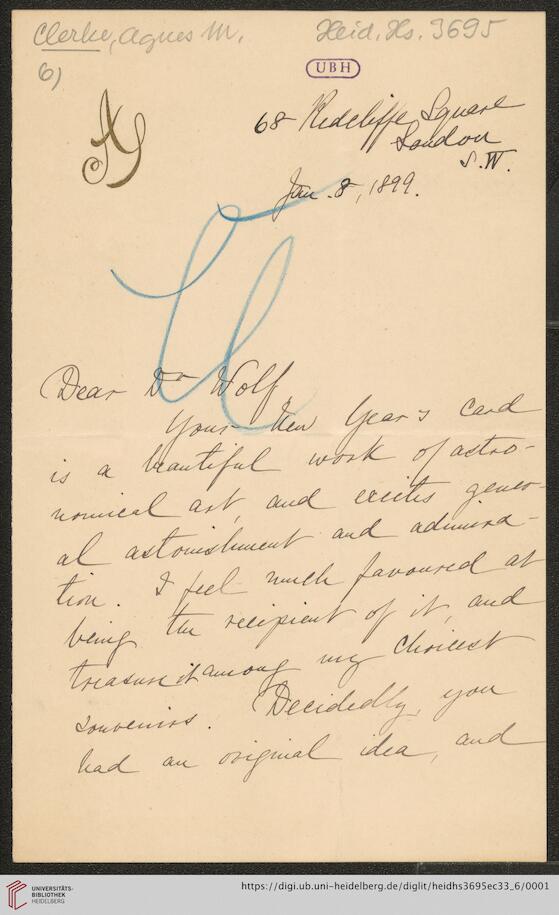 Clerke, Agnes M.
Heid. Hs. 3695
6)
UBH
68 Redcliffe Square
London
S.W.
Jan. 8, 1899.
Dear Dr Wolf,
Your New Year's card
is a beautiful work of astro-
nomical art, and excites gener-
al astonishment and admira-
tion. I feel much favoured at
being the recipient of it, and
treasure it among my choicest
souvenirs. Decidedly, you
had an original idea, and
UNIVERSITÄTS-
BIBLIOTHEK
HEIDELBERG
https://digi.ub.uni-heidelberg.de/diglit/heidhs3695ec33_6/0001